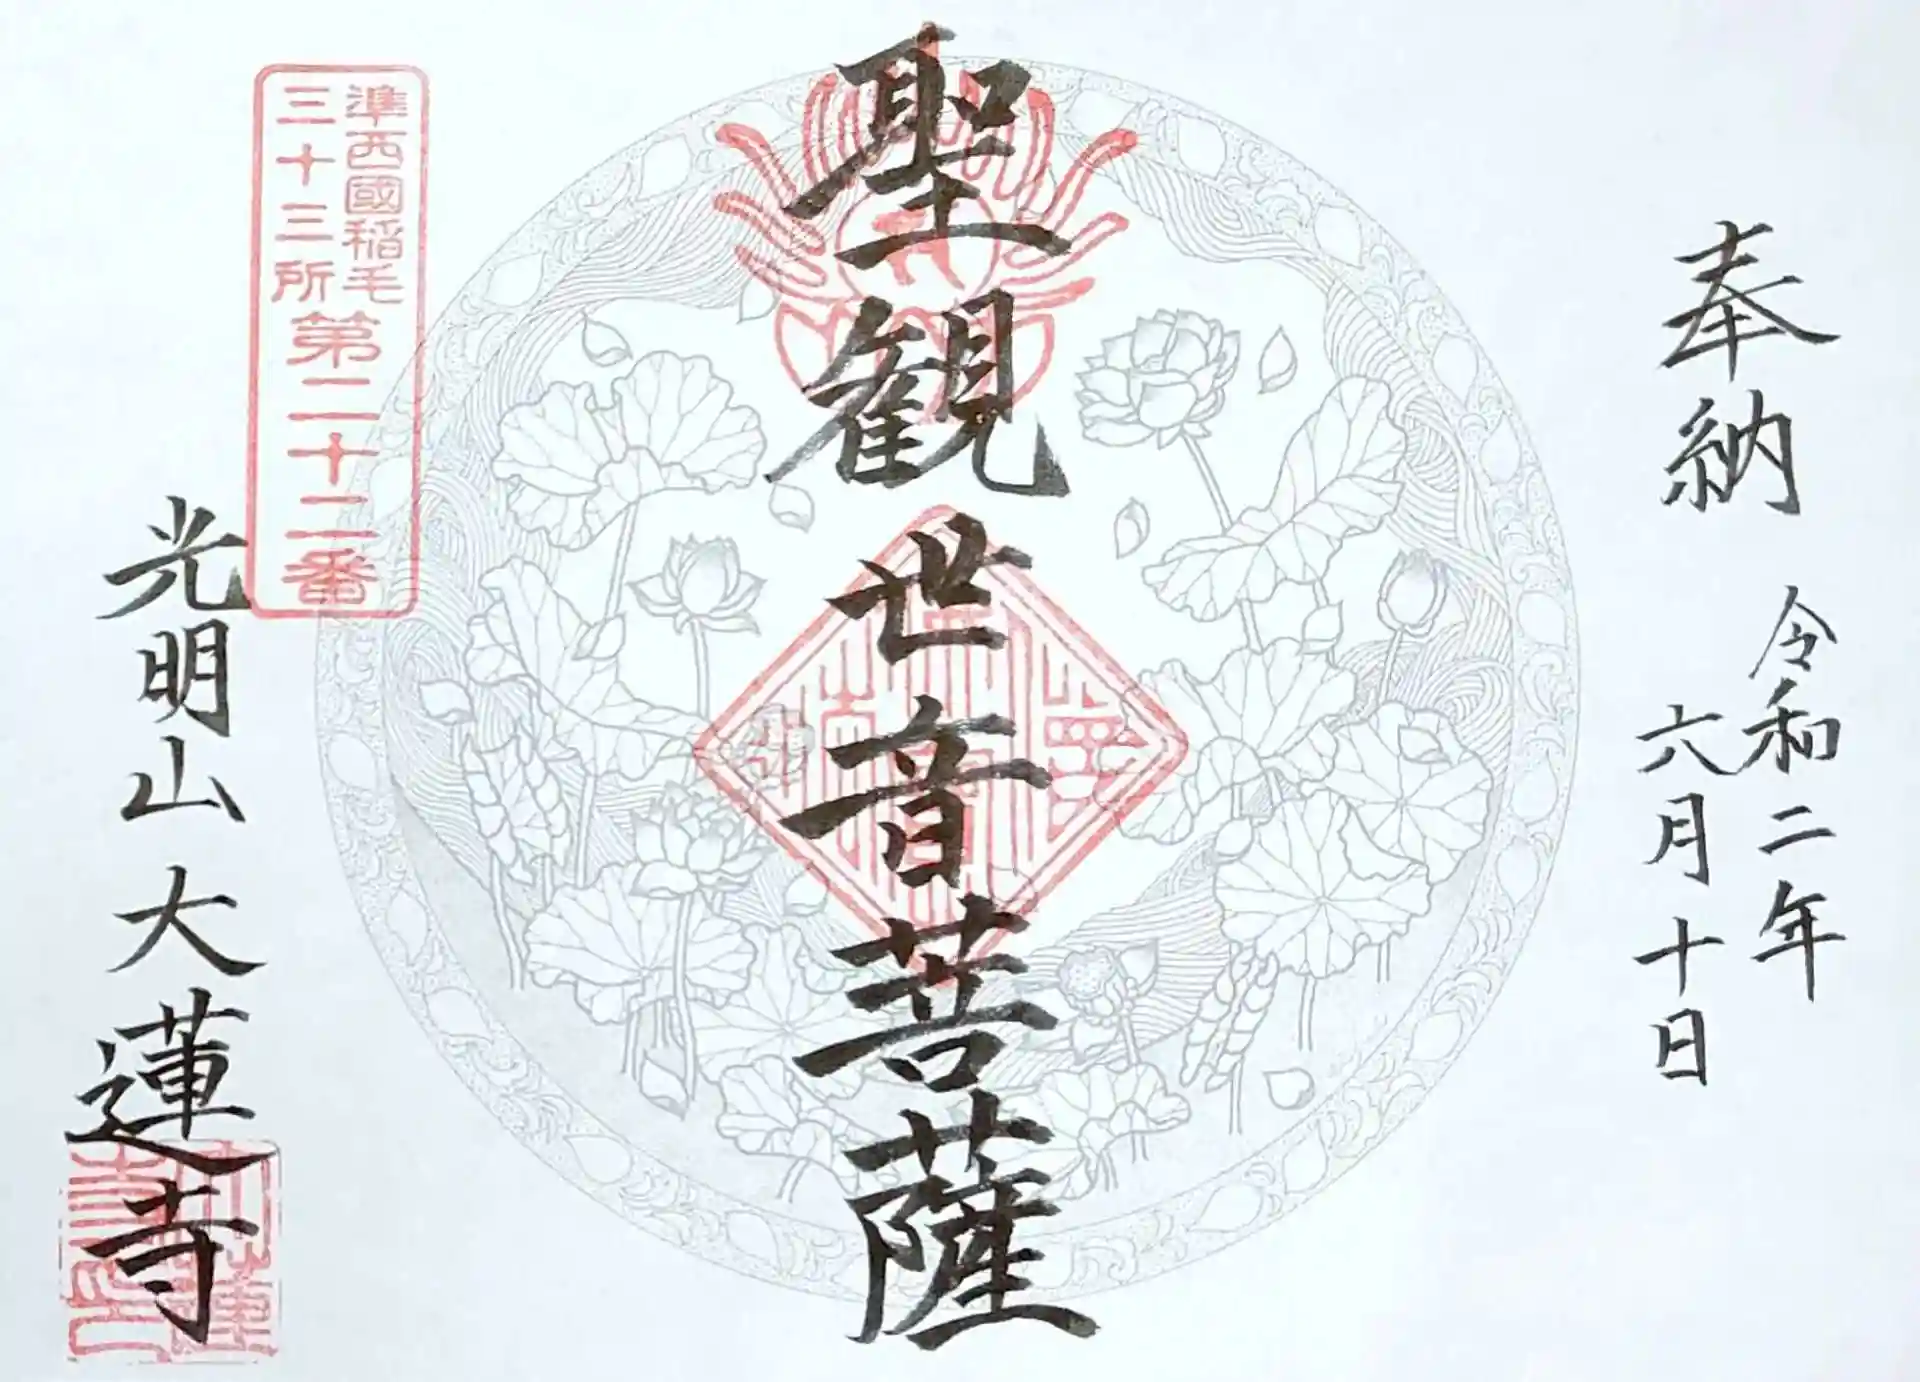 奉納
令和二年
六月十日
聖観世音菩薩
準西國稲毛
三十三所
第二十二番
光明山大蓮寺